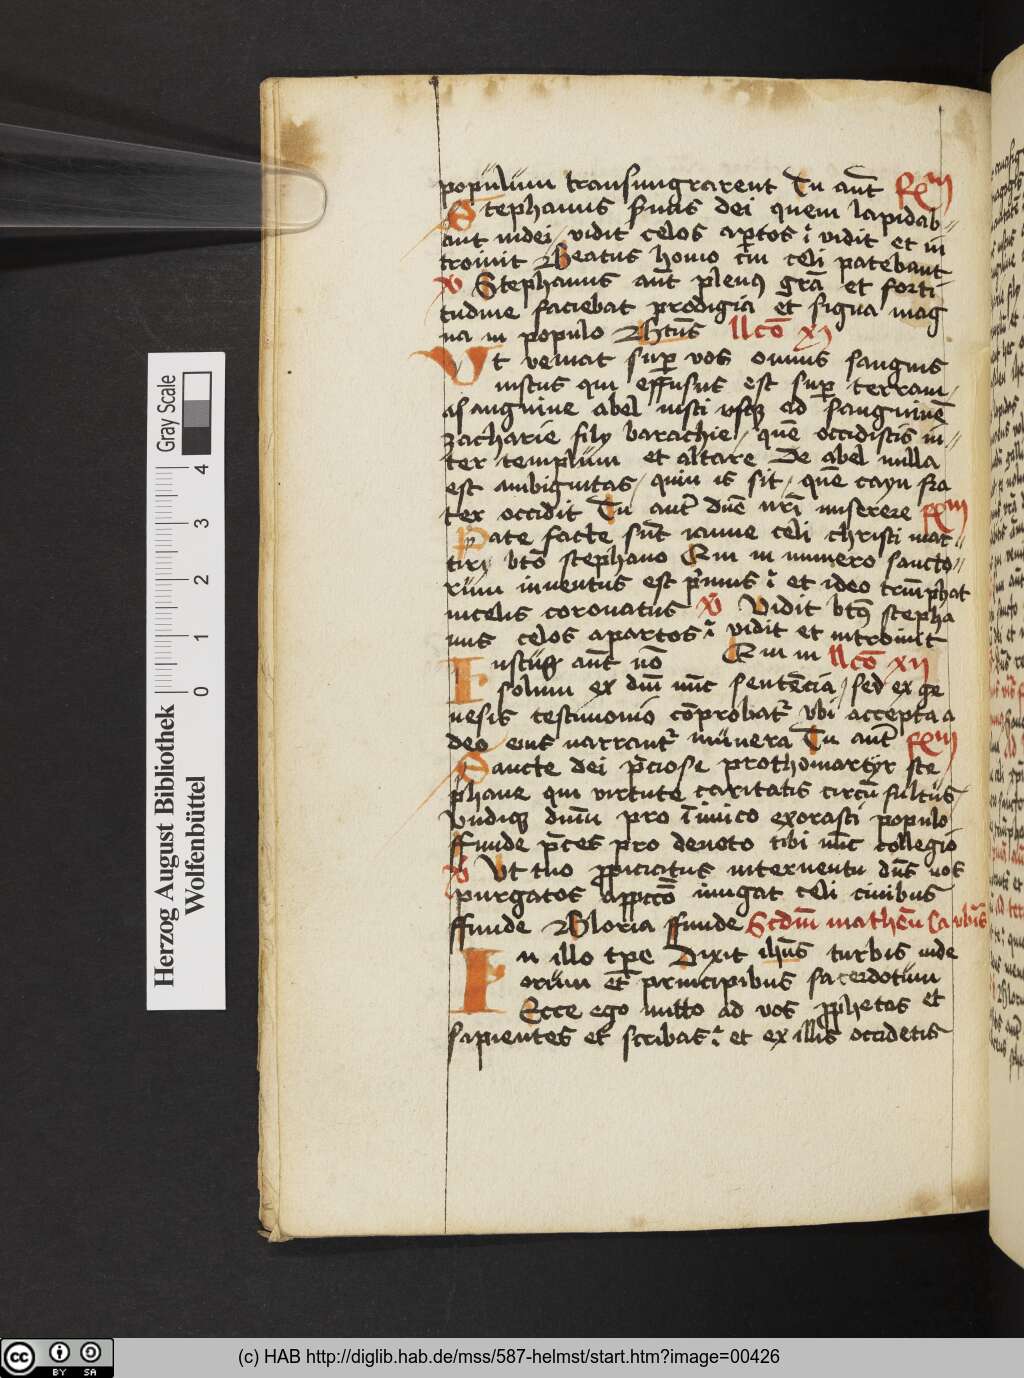 populum transmigrarent Tu aut Rm
Stephanus seruus dei quem lapidab
ant iudei / vidit celos apertos : vidit et in
troiuit Beatus homo cui celi patebant
V Stephanus aut plenus gra et forti
tudine faciebat prodigia et signa mag
na in populo Btus llco xi
Ut veniat super vos omnis sanguis
iustus qui effusus est super terram /
a sanguine abel iusti usque ad sanguinem
zacharie filij barachie / quem occidistis in
ter templum et altare De abel nulla
est ambiguitas / quin is sit / quem cayn fra
ter occidit Tu aut dne nri miserere Rm
Pate facte sunt ianue celi christi mar
tiri bto stephano Qui in numero sancto
rum inuentus est primus : et ideo triumphat
in celis coronatus V Vidit btus stepha
nus celos apartos : vidit et introiuit
Iustus aut no Qui in llco xij
solum ex dni nunc sentencia / sed ex ge
nesis testimonio comprobatur vbi accepta a
deo eius narrantur munera Tu aut Rm
Sancte dei preciose prothomartyr ste
phane qui virtute caritatis circum fultus
Undique dnum pro inimico exorasti populo
ffunde preces pro deuoto tibi nunc collegio
V Ut tuo propiciatus interuentu dns nos
purgatos a pcco iungat celi ciuibus
ffunde Gloria ffunde Scdm matheum
In illo tpe Dixit ihus turbis iude
orum et principibus sacerdotum
Ecce ego mitto ad vos prophetas et
sapientes et scribas : et ex illis occidetis
Herzog August Bibliothek
Wolfenbüttel
0 1 2 3 4
Gray Scale
cc BY SA
(c) HAB http://diglib.hab.de/mss/587-helmst/start.htm?image=00426